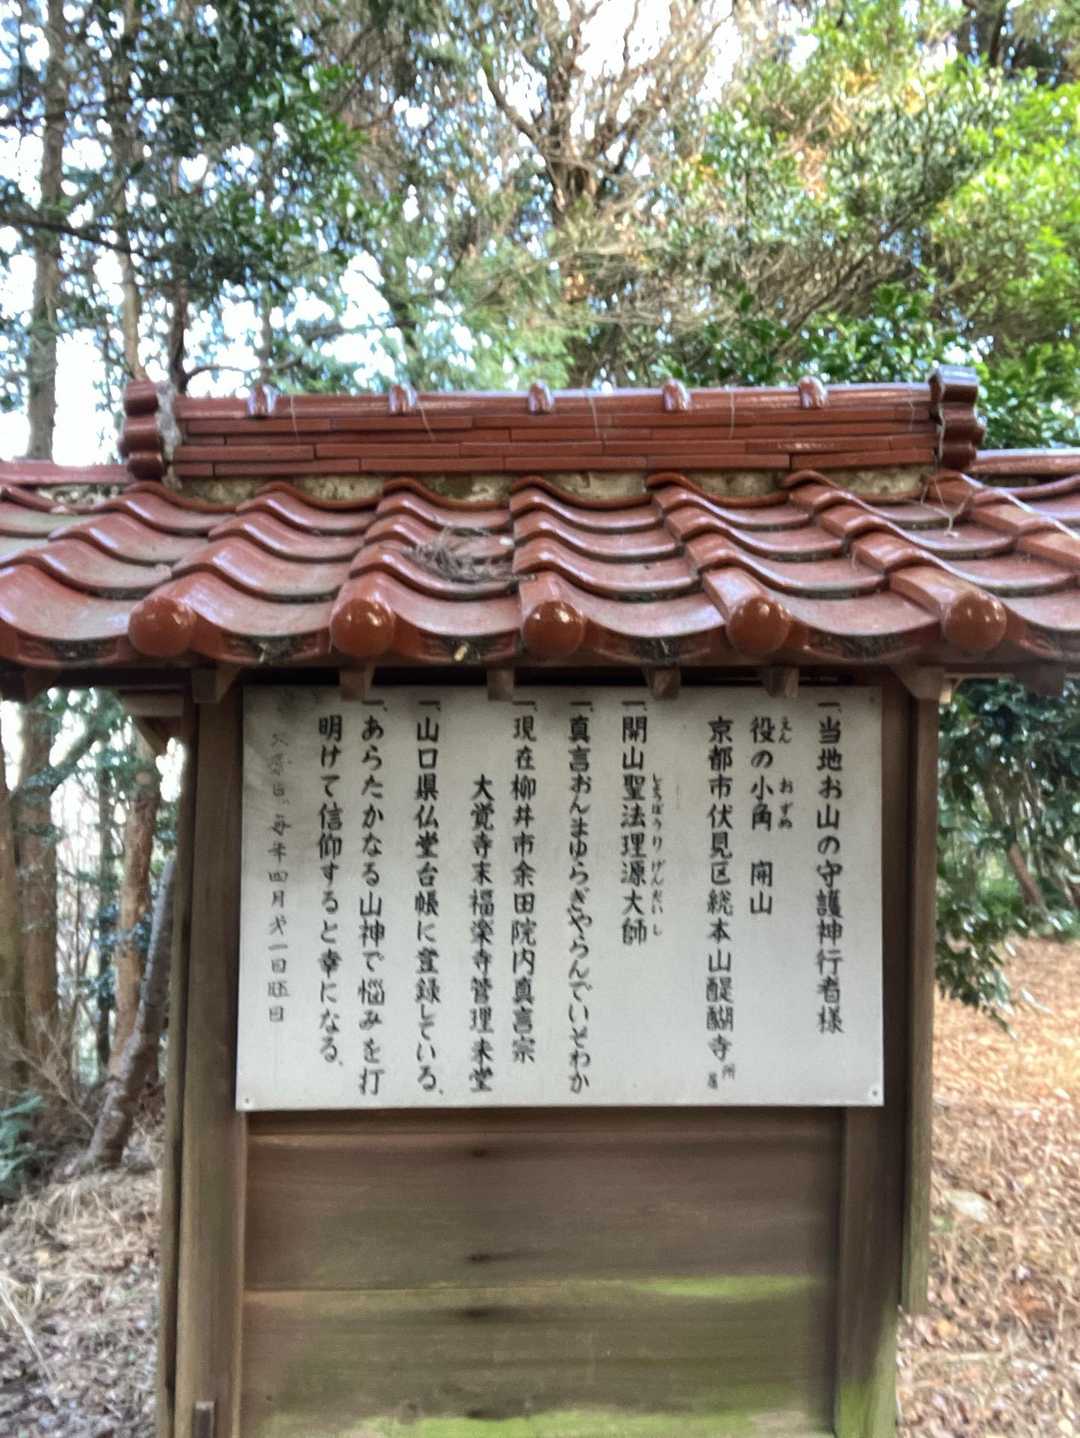 一、当地お山の守護神行者様
役の小角 開山
えん おずぬ
京都市伏見区総本山醍醐寺所属
一、開山聖法理源大師
しょうぼうりげんだいし
一、真言おんまゆらぎやらんでいそわか
一、現在柳井市余田院内真言宗
大覚寺末福楽寺管理末堂
一、山口県仏堂台帳に登録している、
一、あらたかなる山神で悩みを打
明けて信仰すると幸になる、
毎年四月弐一日旺日